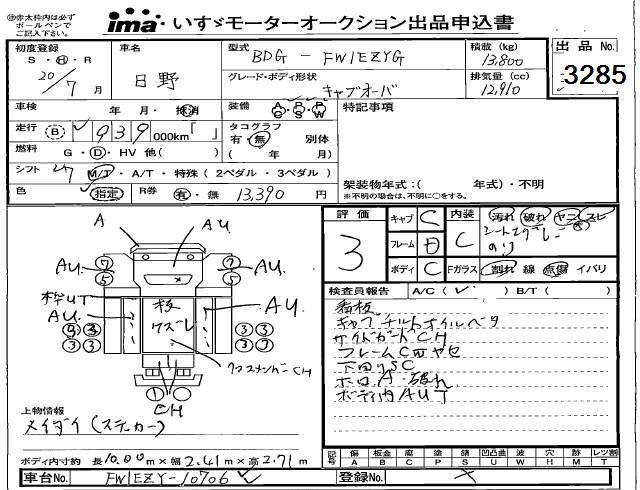 ※赤太枠内は必ず
ボールペンで
ご記入下さい。
ima いすゞモーターオークション出品申込書
初度登録 車名 型式 BDG-FW1EZYG 積載(kg) 13,800 出品No.
S・H・R 20/7月 日野 グレード・ボディ形状 キャブオーバ 排気量(cc) 12,910 3285
車検 年・月・抹消 装備 A/G P/S P/W 特記事項
走行 B 939 000km「 」 タコグラフ 有・無 別体
燃料 G・D・HV 他( ) ( 年 月)
シフト 7 M/T・A/T・特殊(2ペダル・3ペダル) 架装物年式:( 年式)・不明
色 指定 R券 有・無 13,390円 ※不明の場合は、不明に○をする。
評価 3 キャブ C 内装 C 汚れ 破れ ヤニ スレ
フレーム D
ボディ C Fガラス 割れ 線 点傷 イバリ
検査員報告 A/C( ) B/T( )
看板
キャブチルトオイルベタ
サイドガードCH
下回りSC
ボロA・破れ
ボディ内AUT
A AU
AU. AU.
7 5 7 5
枠UT AU
AU
枕
クズレ
3 3 3 3
クロスメンバーCH
CH
上物情報
メイダイ(ステッカー)
記号 傷A 板金B 腐C 塗P 錆S 凹凸曲U 波W 穴H 痛M レツ割T
ボディ内寸約 長10.00m×幅2.41m×高2.71m
車台No. FW1EZY-10706 登録No.